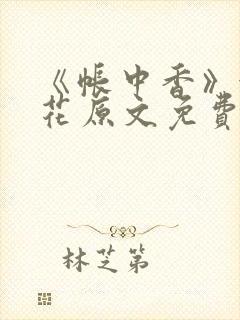 《帐中香》
花原文免費
林芝第